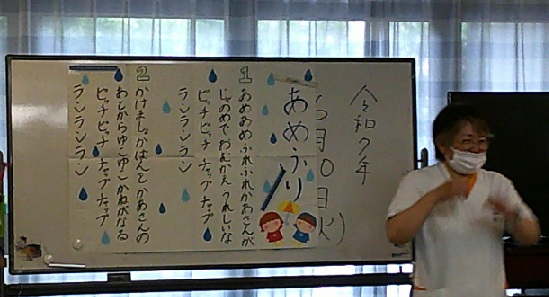 令和7年
6月10日(火)
あめふり
1
あめあめふれふれかあさんが
じゃのめでおむかえうれしいな
ピッチピッチ チャップチャップ
ランランラン
2
かけましょかばんをかあさんの
あとからゆこゆこかねがなる
ピッチピッチ チャップチャップ
ランランラン